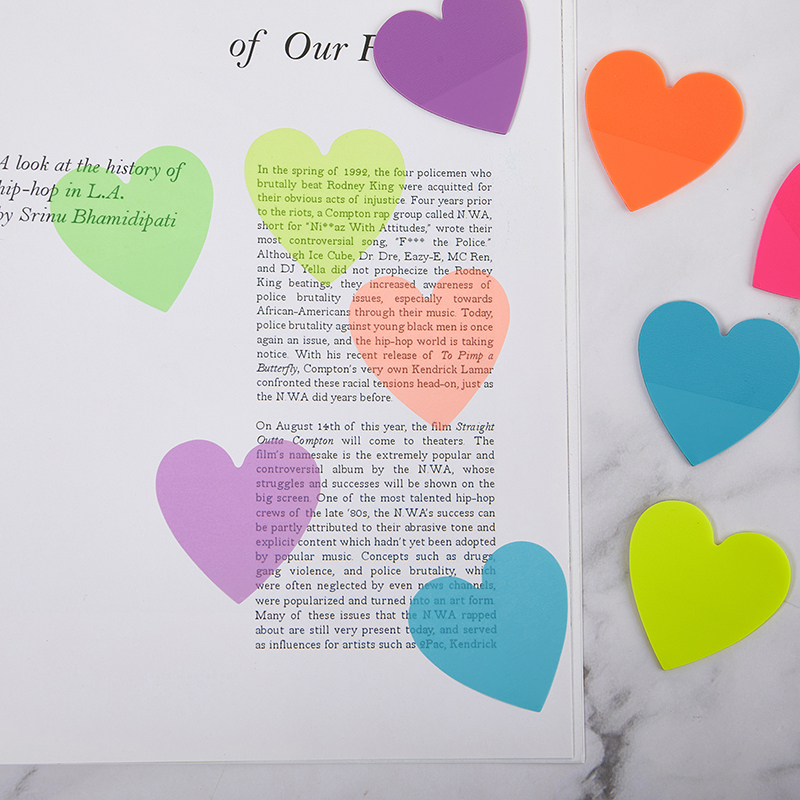 of Our
A look at the history of
hip-hop in L.A.
by Srinu Bhamidipati
In the spring of 1992, the four policemen who
brutally beat Rodney King were acquitted for
their obvious acts of injustice. Four years prior
to the riots, a Compton rap group called N.W.A,
short for "Ni**az With Attitudes," wrote their
most controversial song, "F*** the Police."
Although Ice Cube, Dr. Dre, Eazy-E, MC Ren,
and DJ Yella did not prophecize the Rodney
King beatings, they increased awareness of
police brutality issues, especially towards
African-Americans through their music. Today,
police brutality against young black men is once
again an issue, and the hip-hop world is taking
notice. With his recent release of To Pimp a
Butterfly, Compton's very own Kendrick Lamar
confronted these racial tensions head-on, just as
the N.W.A did years before.
On August 14th of this year, the film Straight
Outta Compton will come to theaters. The
film's namesake is the extremely popular and
controversial album by the N.W.A, whose
struggles and successes will be shown on the
big screen. One of the most talented hip-hop
crews of the late '80s, the N.W.A's success can
be partly attributed to their abrasive tone and
explicit content which hadn't yet been adopted
by popular music. Concepts such as drugs,
gang violence, and police brutality, which
were often neglected by even news channels,
were popularized and turned into an art form.
Many of these issues that the N.W.A rapped
about are still very present today, and served
as influences for artists such as 2Pac, Kendrick